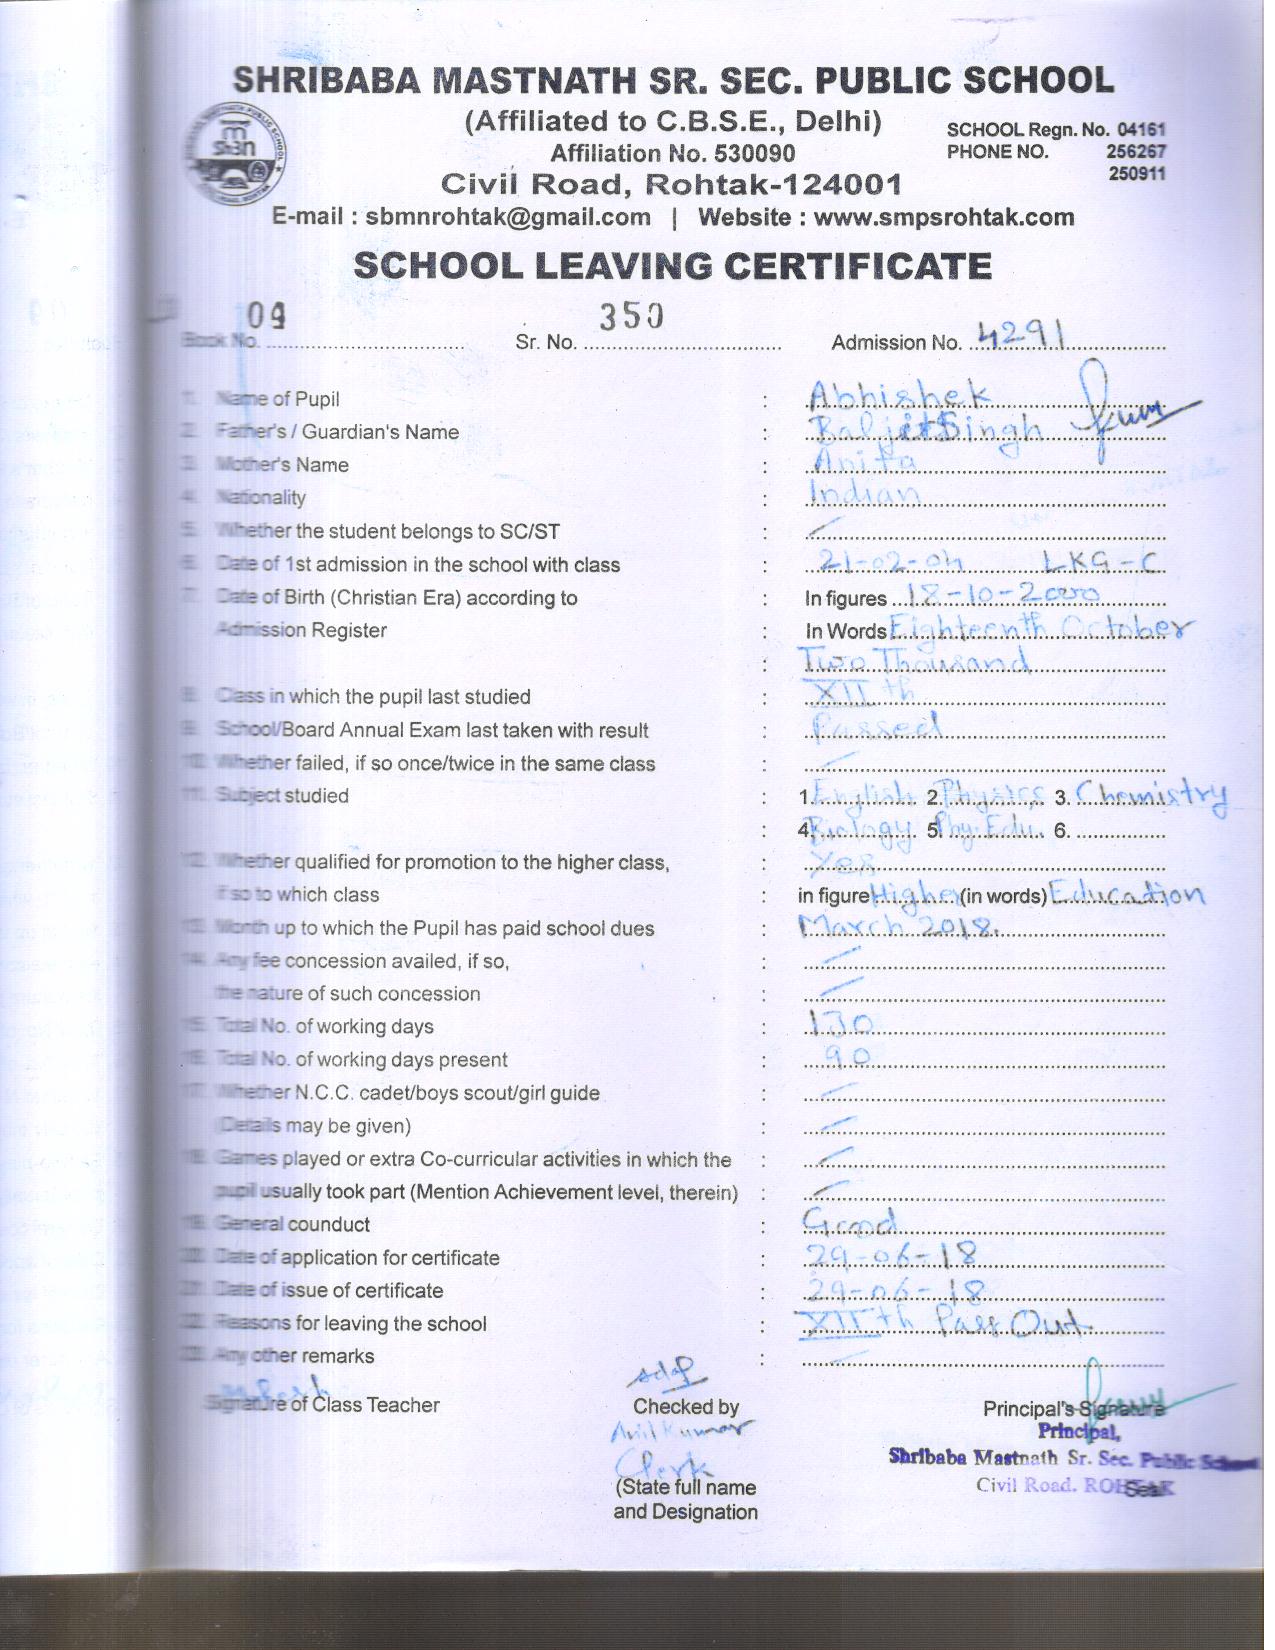 SHRIBABA MASTNATH SR. SEC. PUBLIC SCHOOL
(Affiliated to C.B.S.E., Delhi)
Affiliation No. 530090
SCHOOL Regn. No. 04161
PHONE NO. 256267
250911
Civil Road, Rohtak-124001
E-mail : sbmnrohtak@gmail.com | Website : www.smpsrohtak.com
SCHOOL LEAVING CERTIFICATE
Book No. 09 Sr. No. 350 Admission No. 4291
1. Name of Pupil : Abhishek
2. Father's / Guardian's Name : Baljeet Singh
3. Mother's Name : Anita
4. Nationality : Indian
5. Whether the student belongs to SC/ST : /
6. Date of 1st admission in the school with class : 21-02-04 LKG-C
7. Date of Birth (Christian Era) according to : In figures 18-10-2000
Admission Register : In Words Eighteenth October
: Two Thousand
8. Class in which the pupil last studied : XIIth
9. School/Board Annual Exam last taken with result : Passed
10. Whether failed, if so once/twice in the same class : /
11. Subject studied : 1. English 2. Physics 3. Chemistry
: 4. Biology 5. Phy. Edu. 6.
12. Whether qualified for promotion to the higher class, : Yes
if so to which class : in figure Higher (in words) Education
13. Month up to which the Pupil has paid school dues : March 2018.
14. Any fee concession availed, if so, : /
the nature of such concession : /
15. Total No. of working days : 130
16. Total No. of working days present : 90
17. Whether N.C.C. cadet/boys scout/girl guide : /
(Details may be given) : /
18. Games played or extra Co-curricular activities in which the : /
pupil usually took part (Mention Achievement level, therein) : /
19. General counduct : Good
20. Date of application for certificate : 29-06-18
21. Date of issue of certificate : 29-06-18
22. Reasons for leaving the school : XIIth Pass Out
23. Any other remarks : /
Signature of Class Teacher Checked by Principal's Signature
Anil Kumar
Clerk
(State full name
and Designation
Principal,
Shribaba Mastnath Sr. Sec. Public School
Civil Road. ROHTAK
Seal